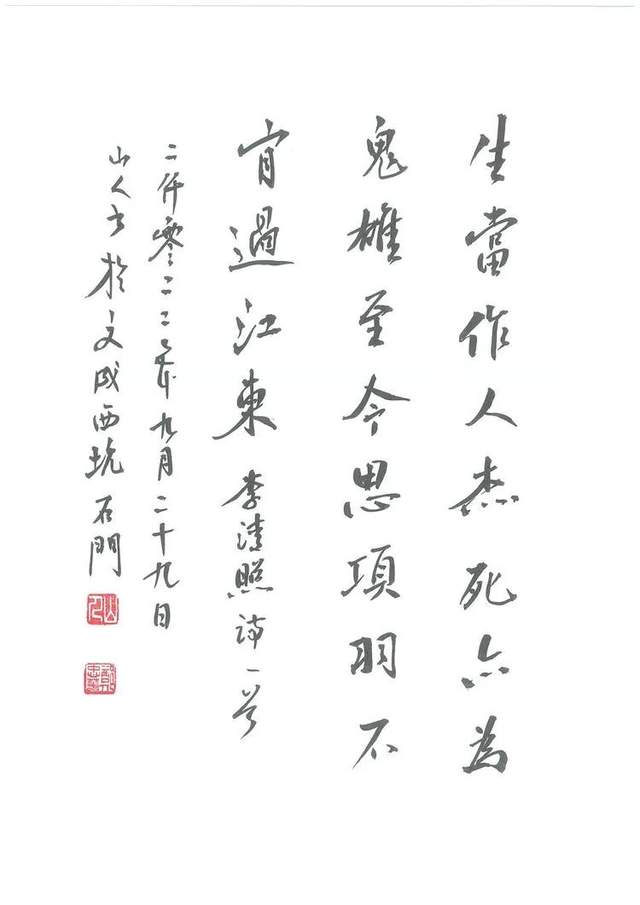 生當作人杰死亦為
鬼雄至今思項羽不
肯過江東 李清照詩一首
二仟零二二年九月二十九日
山人書於文成西坑石門
山人